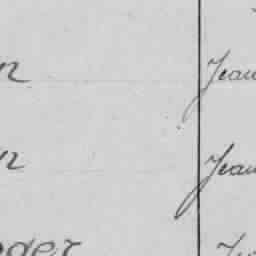 n Jean
n Jean
oger